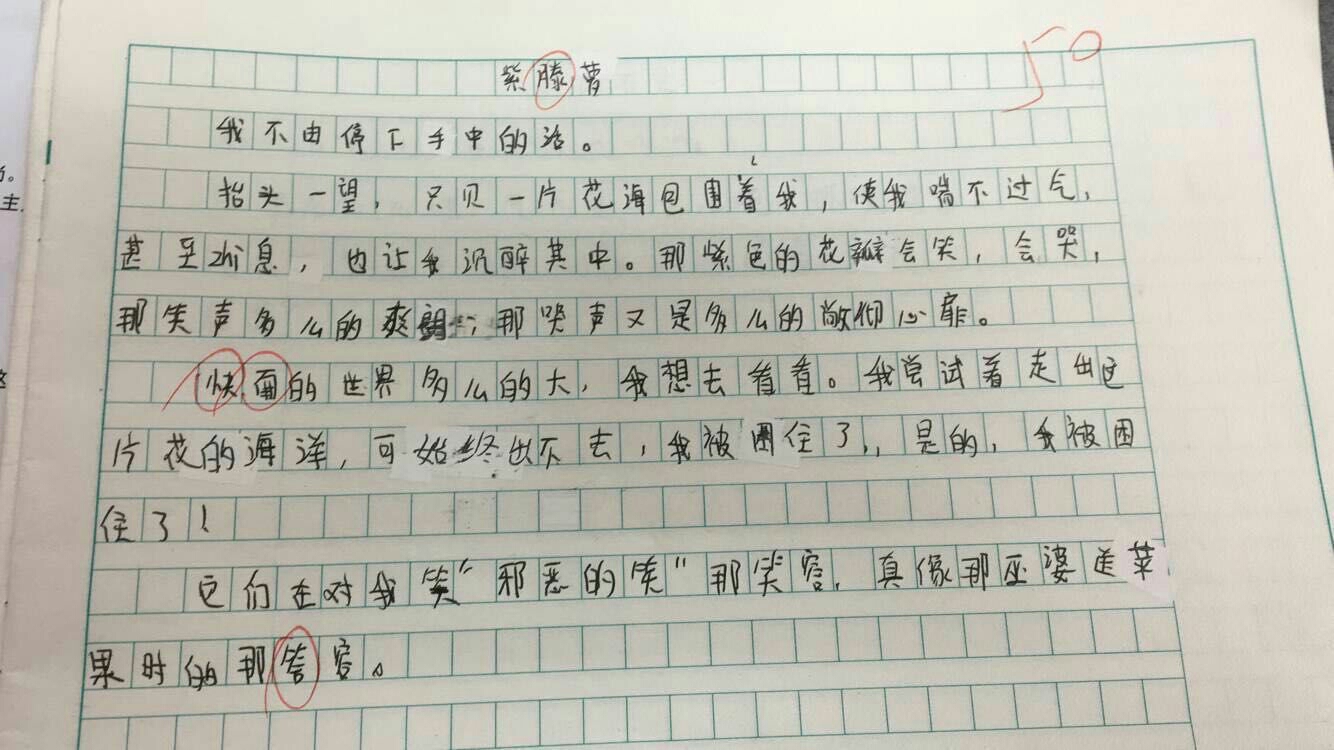 紫滕萝
50
我不由停下手中的活。
抬头一望，只见一片花海包围着我，使我喘不过气，
甚至zhi息，也让我沉醉其中。那紫色的花瓣会笑，会哭，
那笑声多么的爽朗；那哭声又是多么的敞彻心扉。
快面的世界多么的大，我想去看看。我尝试着走出这
片花的海洋，可始终出不去，我被困住了，是的，我被困
住了！
它们在对我笑“邪恶的笑”那笑容，真像那巫婆送苹
果时的那答容。
主